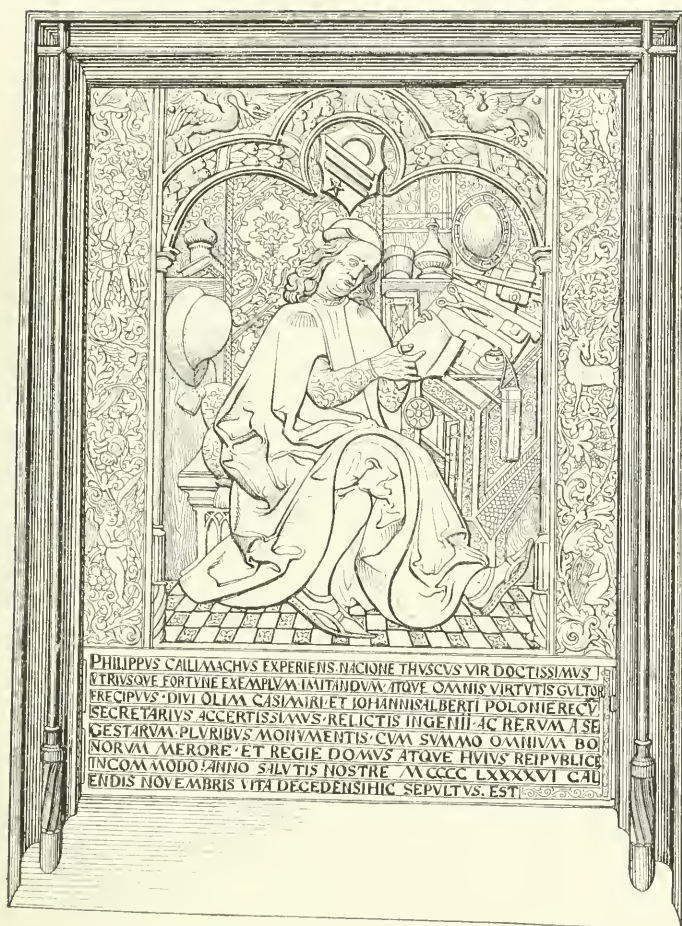 PHILIPPVS CALLIMACHVS EXPERIENS. NACIONE THVSCVS VIR DOCTISSIMVS
VTRIVSQVE FORTVNE EXEMPLVM IMITANDVM· ATQVE OMNIS VIRTVTIS CVLTOR
PRECIPVVS· DIVI OLIM CASIMIRI· ET IOHANNIS ALBERTI POLONIE RECV
SECRETARIVS ACCERTISSIMVS· RELICTIS INGENII· AC RERVM A SE
GESTARVM· PLVRIBVS MONVMENTIS· CVM SVMMO OMNIVM BO
NORVM MERORE· ET REGIE DOMVS ATQVE HVIVS REIPVBLICE
INCOMMODO· ANNO SALVTIS NOSTRE MCCCC LXXXXVI CAL
ENDIS NOVEMBRIS VITA DECEDENS HIC SEPVLTVS. EST